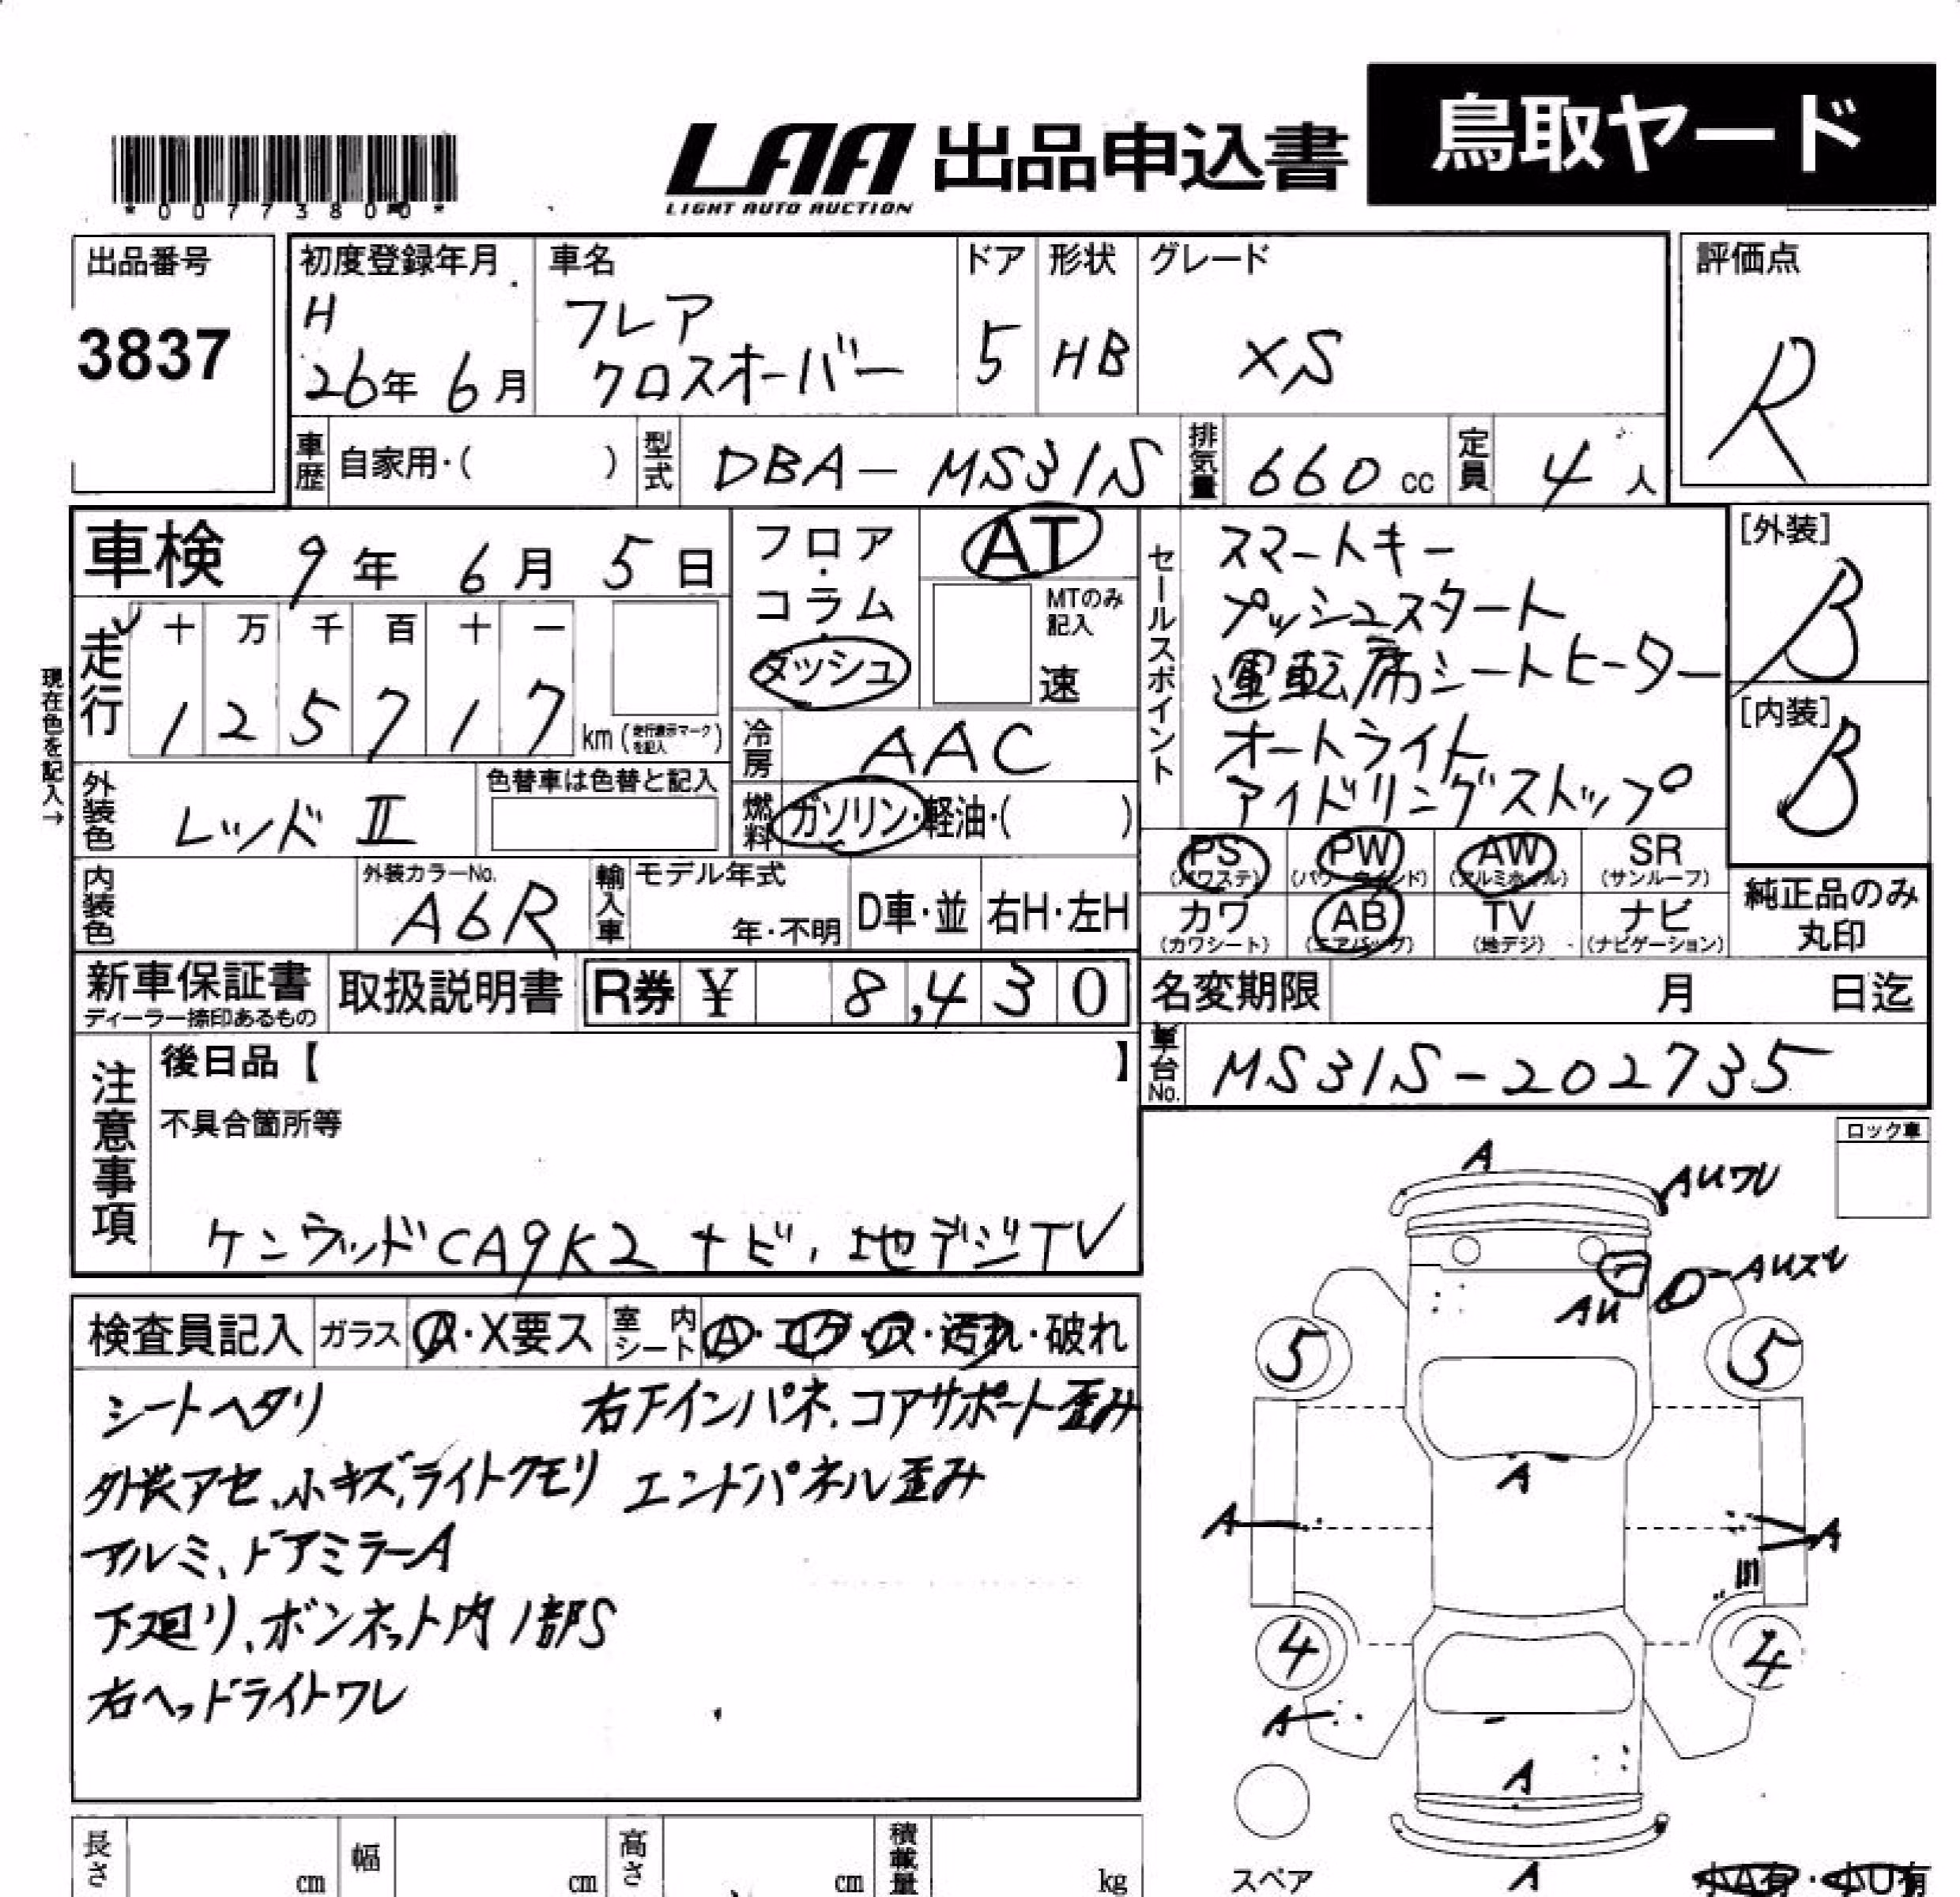 LAA 出品申込書 鳥取ヤード
LIGHT AUTO AUCTION
*00773800*
出品番号
3837
初度登録年月
H
26年 6月
車名
フレア
クロスオーバー
ドア
5
形状
HB
グレード
XS
評価点
R
車歴 自家用・( )
型式 DBA-MS31S
排気量 660cc
定員 4人
車検 9年 6月 5日
フロア・コラム・ダッシュ
AT
MTのみ記入
速
セールスポイント
スマートキー
プッシュスタート
運転席シートヒーター
オートライト
アイドリングストップ
[外装]
B
[内装]
B
現在色を記入→
走行
十 万 千 百 十 一
1 2 5 7 1 7 km (走行表示マークを記入)
冷房 AAC
外装色 レッドⅡ
色替車は色替と記入
燃料 ガソリン・軽油・( )
PS (パワステ) PW (パワーウインド) AW (アルミホイル) SR (サンルーフ)
カワ (カワシート) AB (エアバッグ) TV (地デジ) ナビ (ナビゲーション)
純正品のみ丸印
内装色
外装カラーNo.
A6R
輸入車 モデル年式
年・不明
D車・並 右H・左H
新車保証書
ディーラー捺印あるもの
取扱説明書
R券 ¥ 8,430
名変期限 月 日迄
車台No. MS31S-202735
注意事項
後日品【 】
不具合箇所等
ケンウッドCA9K2 ナビ、地デジTV
ロック車
検査員記入 ガラス A・X要ス 室内シート A・コゲ・ス・汚れ・破れ
シートヘタリ 右下インパネ、コアサポート歪み
外装アセ、小キズ、ライトクモリ エンドパネル歪み
アルミ、ドアミラーA
下廻り、ボンネット内1部S
右ヘッドライトワレ
A
AUワレ
AUズレ
AU
5 5
A
A A
4 4
A
A
スペア
A
小A有・小U有
長さ cm 幅 cm 高さ cm 積載量 kg